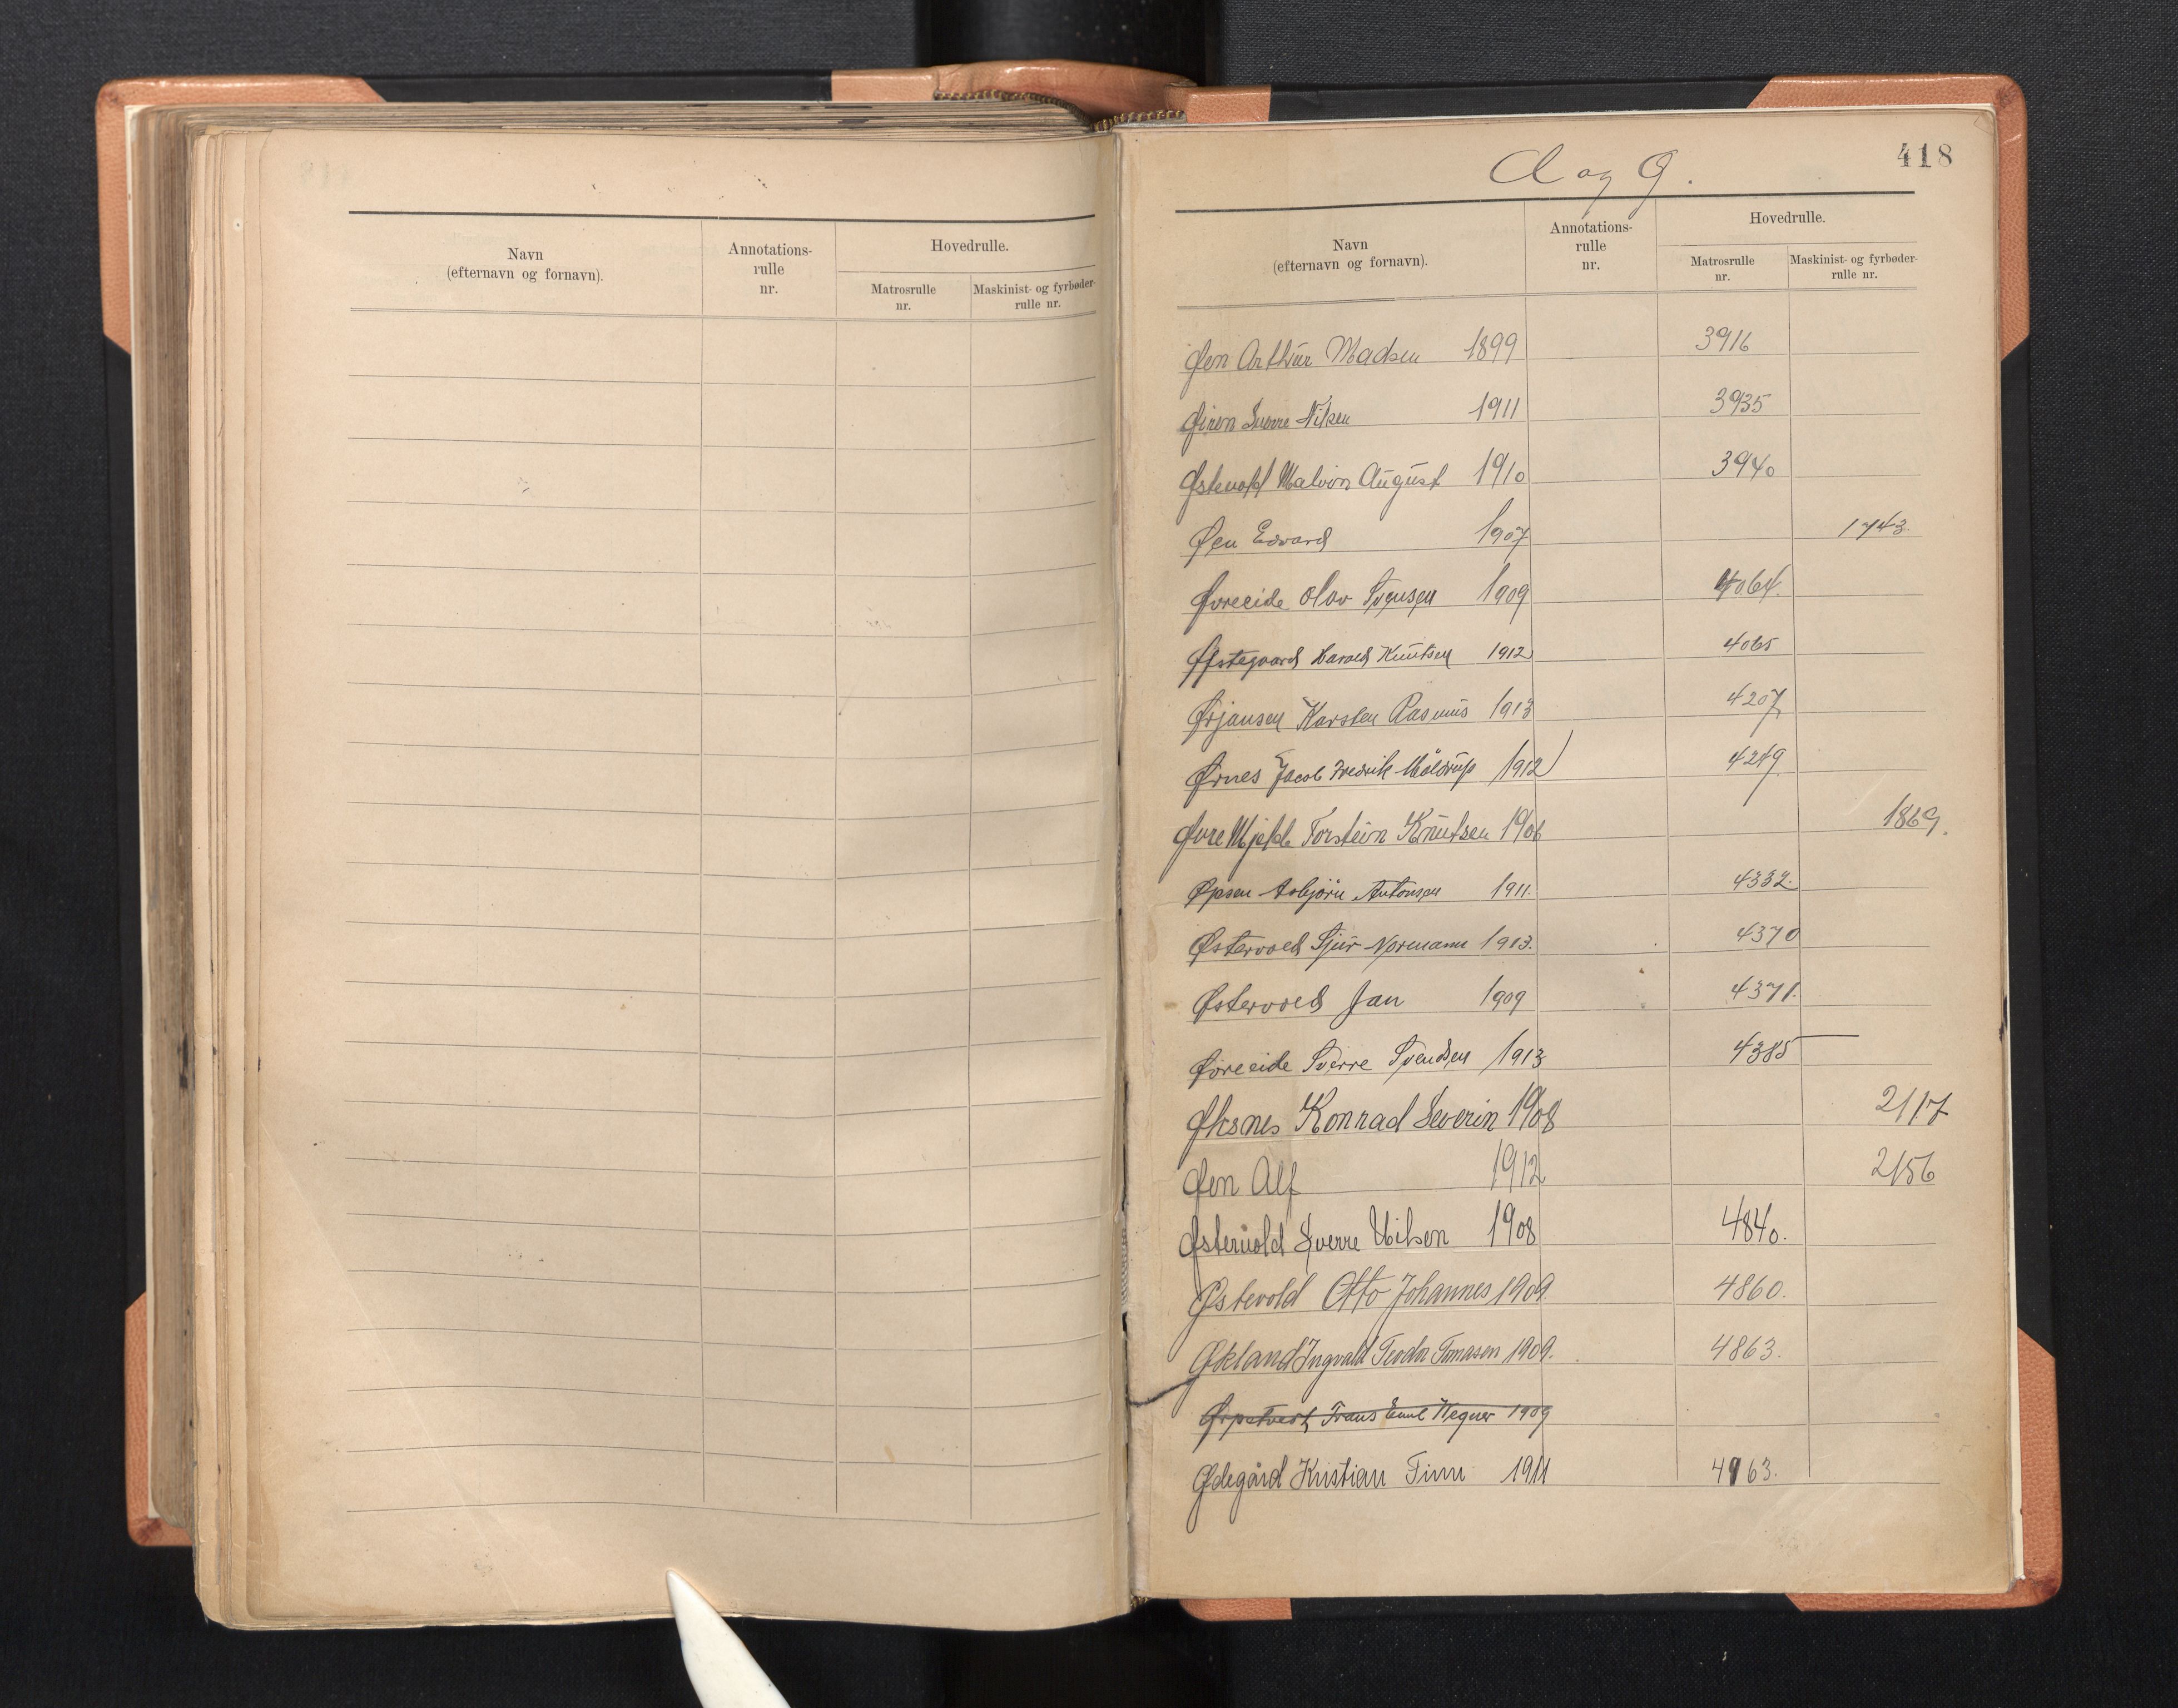 Navn
(efternavn og fornavn).
Annotations-
rulle
nr.
Hovedrulle.
Matrosrulle
nr.
Maskinist- og fyrbøder-
rulle nr.
418
og Ø.
Navn
(efternavn og fornavn).
Annotations-
rulle
nr.
Hovedrulle.
Matrosrulle
nr.
Maskinist- og fyrbøder-
rulle nr.
Øen Arthur Madsen 1899 3916
Sverre Nilsen 1911 3935
Østevold Malvin August 1910 3940
Øen Edvard 1907 1743
Øvreeide Olav Svensen 1909 4064.
Harald Knutsen 1912 4065
Ørjansen Karsten Rasmus 1913 4207
Ørnes Jacob Fredrik 1912 4249
Øvre Torstein Knutsen 1906 1869.
Øpsen Asbjørn Antonsen 1911. 4332.
Østervold Sjur Normann 1913. 4370
Østervold Jan 1909 4371.
Øvreeide Sverre Svendsen 1913 4385
Øksnes Konrad Severin 1908 2117
Øen Alf 1912 2156
Østervold Sverre Nilsen 1908 4840.
Østevold Otto Johannes 1909 4860.
Økland Ingvald Teodor Tomasen 1909. 4863.
Frans Emil Wegner 1909
Ødegård Kristian Finn 1911 4963.